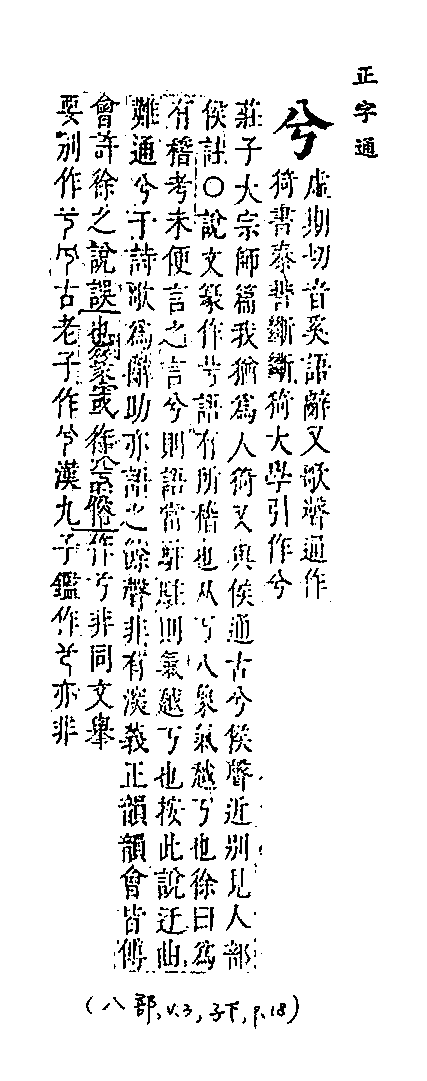 正字通
兮
虛期切音奚語辭又歌聲通作
猗書秦誓斷斷猗大學引作兮
莊子大宗師篇我猶爲人猗又與侯通古兮侯聲近別見人部
侯註〇說文篆作兮語有所稽也从丂八象氣越丂也徐曰爲
有稽考未便言之言兮則語當駐駐則氣越丂也按此說迂曲
難通兮于詩歌爲辭助亦語之餘聲非有深義正韻韻會皆傳
會許徐之說誤也篆或俗作兮非同文舉
要別作兮古老子作兮漢九子鑑作兮亦非
(八部, v.3, 子下, p.18)